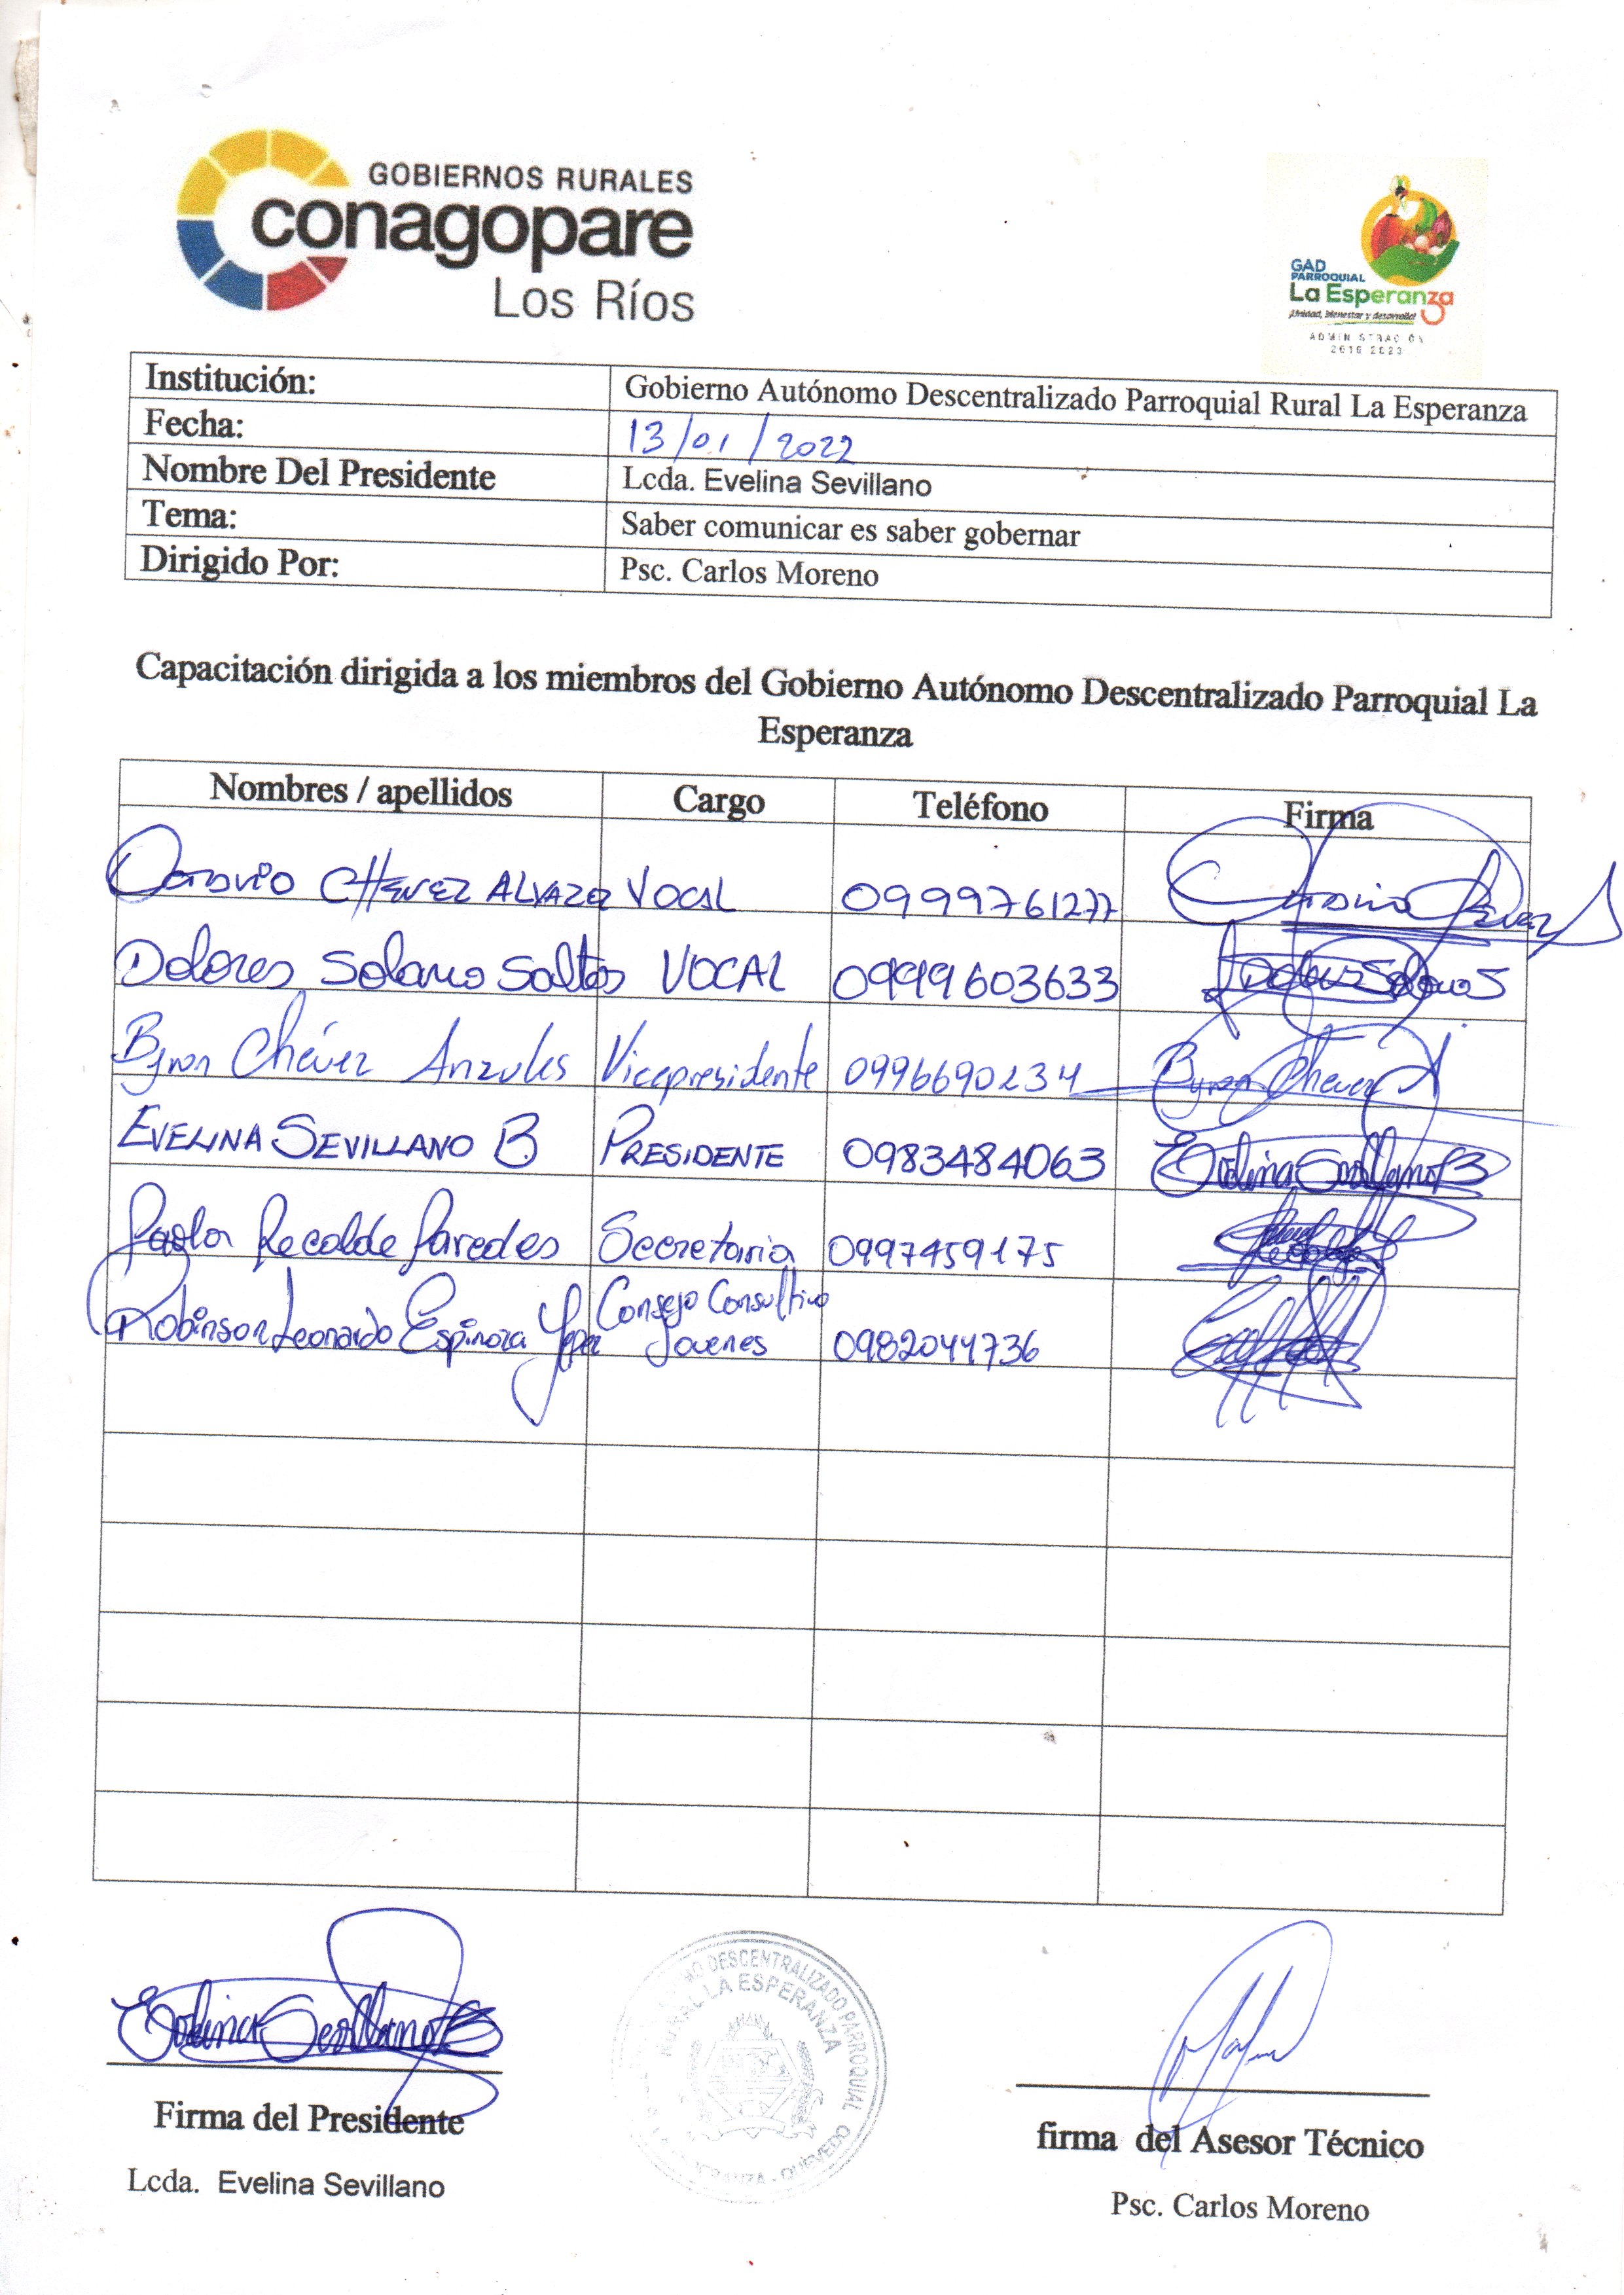 GOBIERNOS RURALES
conagopare
Los Ríos
GAD
PARROQUIAL
La Esperanza
¡Unidad, bienestar y desarrollo!
ADMINISTRACIÓN
2019 2023
Institución: Gobierno Autónomo Descentralizado Parroquial Rural La Esperanza
Fecha: 13/01/2022
Nombre Del Presidente Lcda. Evelina Sevillano
Tema: Saber comunicar es saber gobernar
Dirigido Por: Psc. Carlos Moreno
Capacitación dirigida a los miembros del Gobierno Autónomo Descentralizado Parroquial La
Esperanza
Nombres / apellidos Cargo Teléfono Firma
CHEVEZ VOCAL 0999761277
Dolores Solano Saltos VOCAL 0999603633 Dolores Solano S
Byron Chévez Anzules Vicepresidente 0996690234 Byron Chevez A
EVELINA SEVILLANO B. PRESIDENTE 0983484063 Evelina Sevillano B
Paola Recalde Paredes Secretaria 0997459175
Robinson Leonardo Espinoza Yepez Consejo Consultivo
Jovenes 0982044736
Evelina Sevillano B
Firma del Presidente
Lcda. Evelina Sevillano
DESCENTRALIZADO PARROQUIAL
RURAL LA ESPERANZA
QUEVEDO
firma del Asesor Técnico
Psc. Carlos Moreno